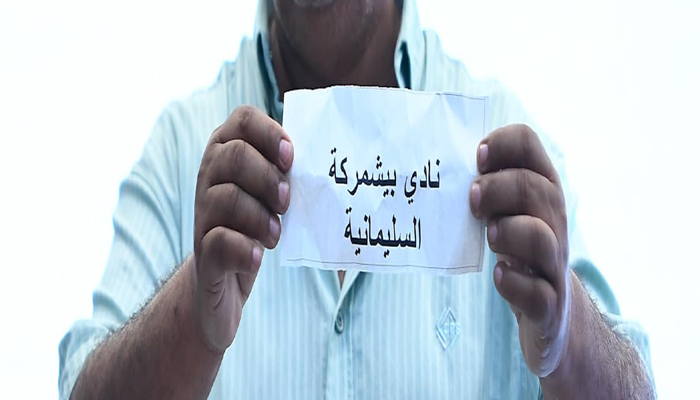 نادي بيشمركة
السليمانية